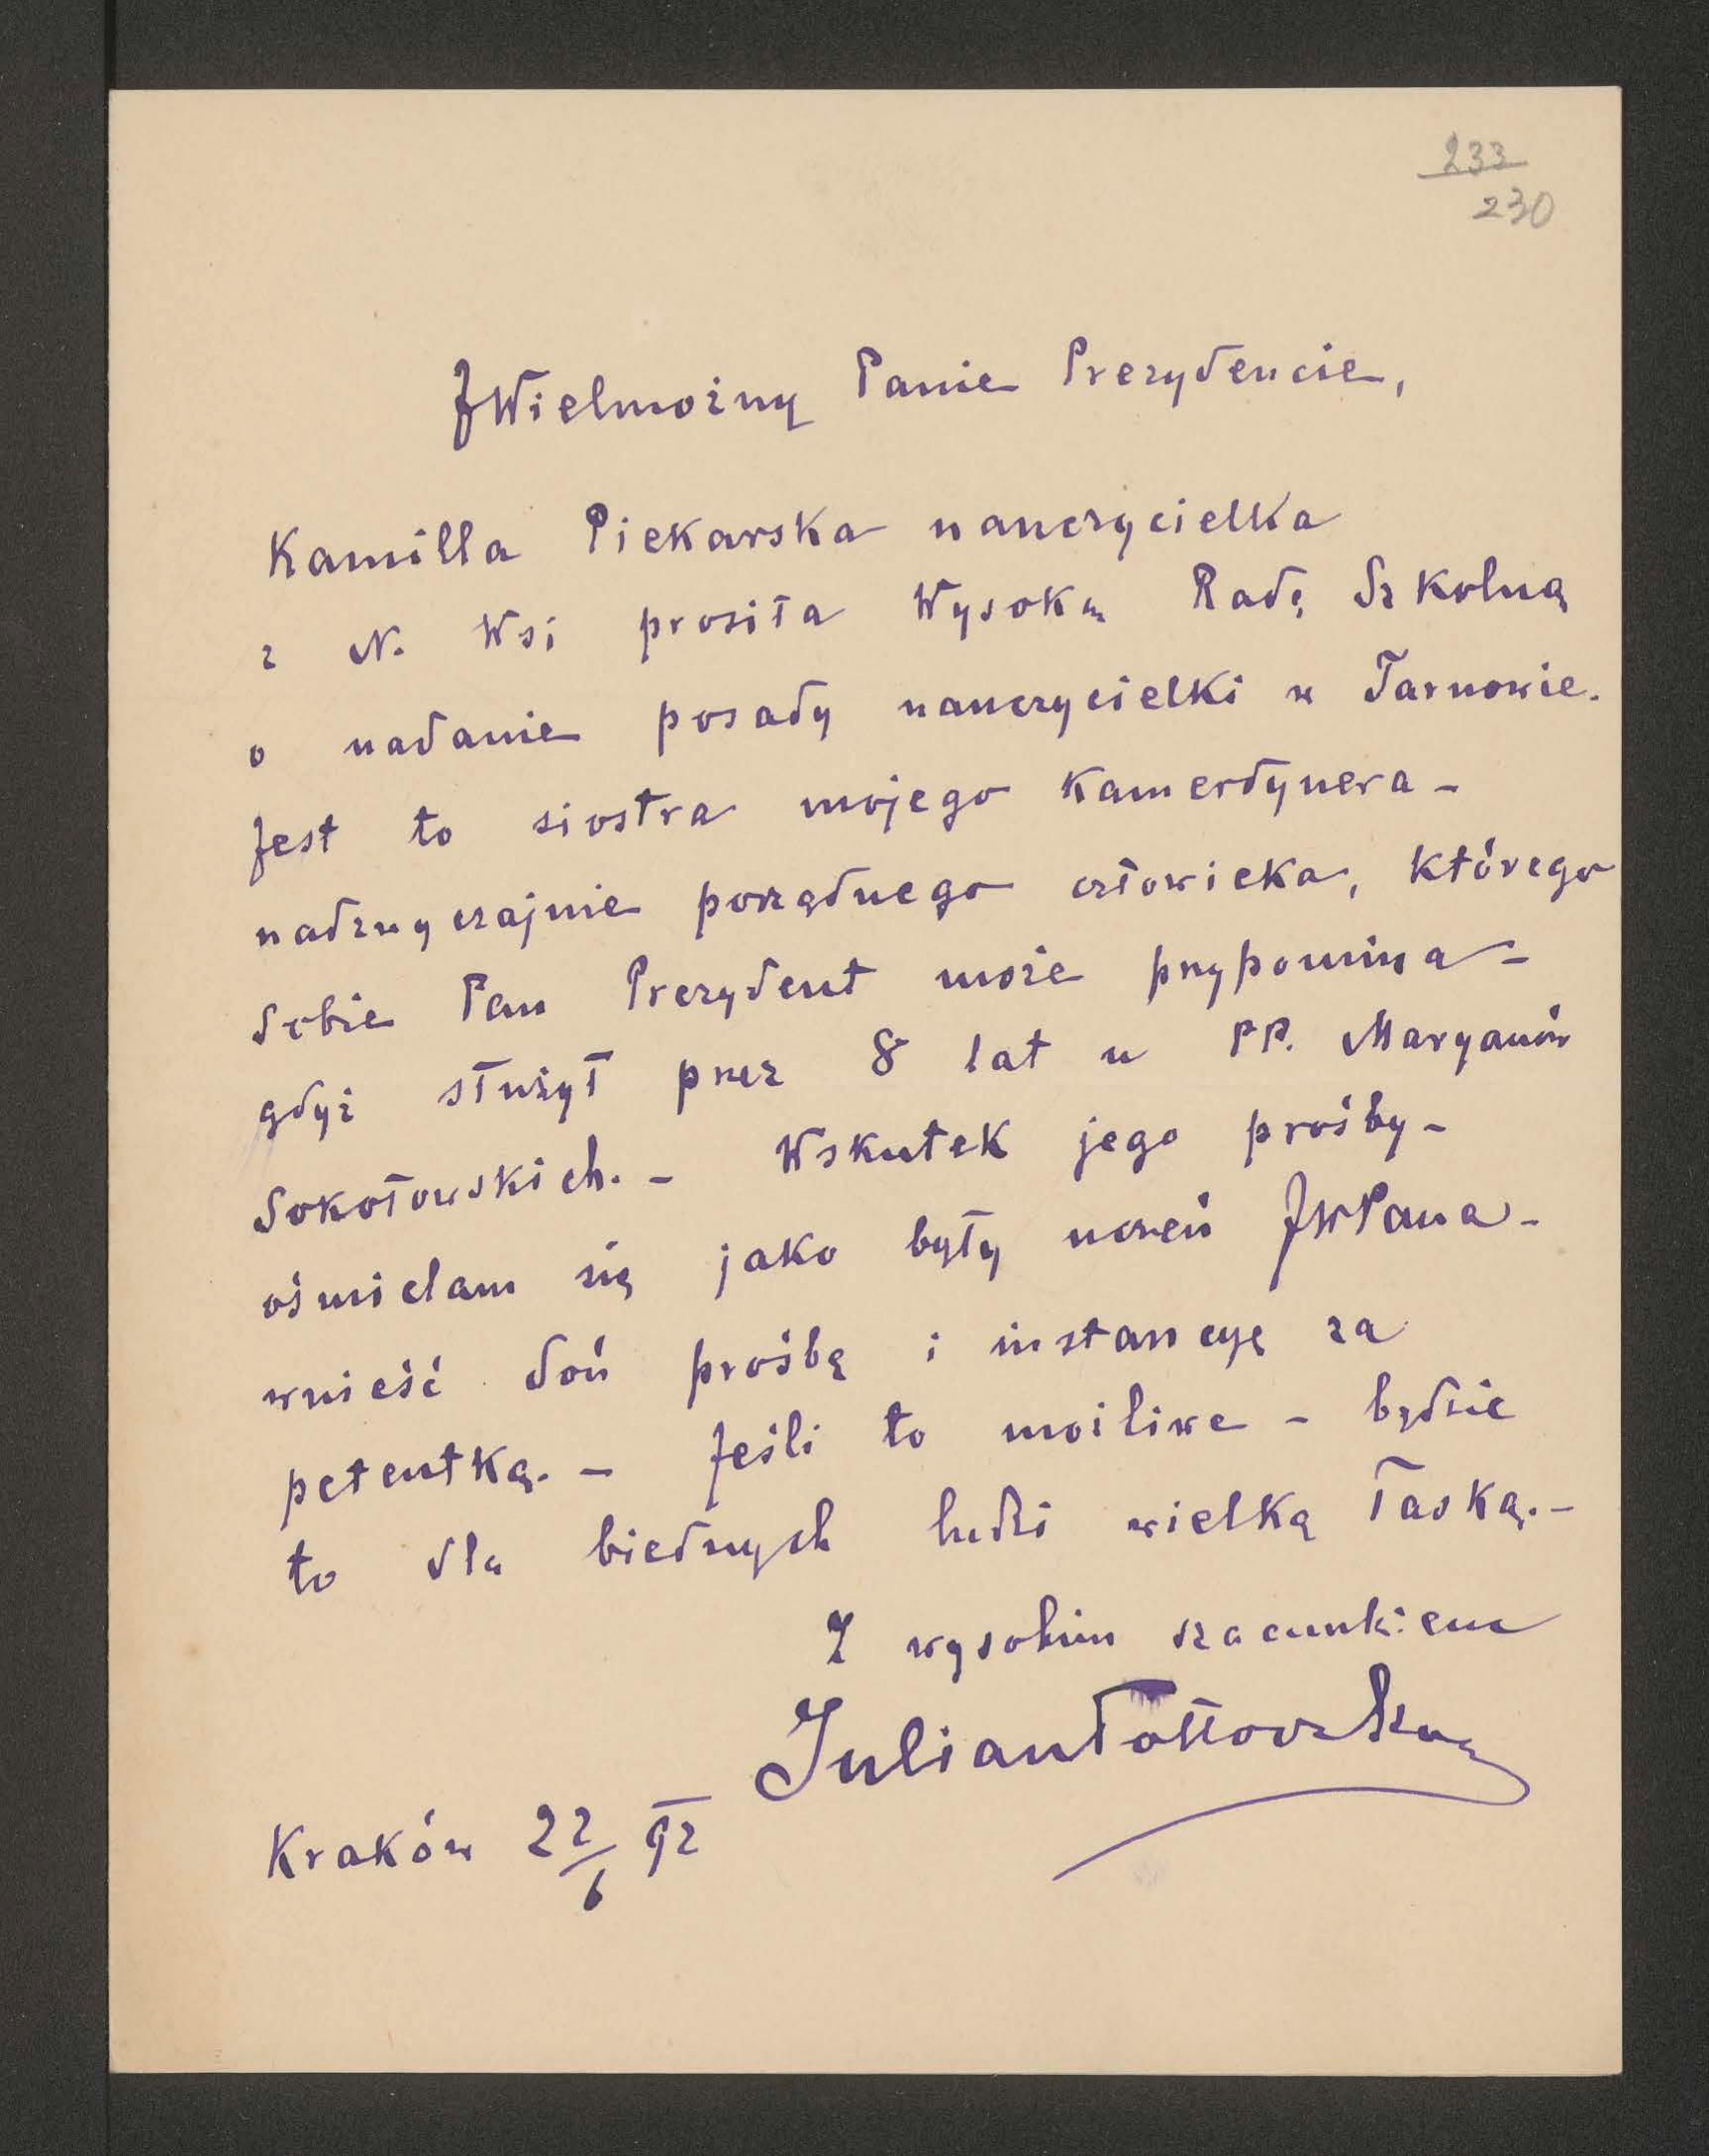 233
230
JWielmożny Panie Prezydencie,
Kamilla Piekarska nauczycielka
z N. Wsi prosiła Wysoką Radę Szkolną
o nadanie posady nauczycielki w Tarnowie.
Jest to siostra mojego Kamerdynera -
nadzwyczajnie porządnego człowieka, którego
sobie Pan Prezydent może przypomina -
gdyż służył przez 8 lat u PP. Maryanów
Sokołowskich. - Wskutek jego prośby -
ośmielam się jako były uczeń JWPana -
wnieść doń prośbę i instancyę za
petentką. - Jeśli to możliwe - będzie
to dla biednych ludzi wielką łaską. -
Z wysokim szacunkiem
Julian
Kraków 22/6 92